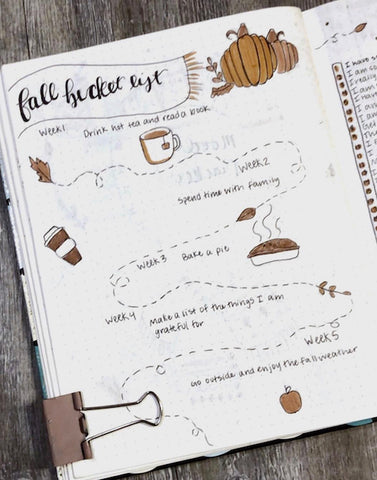 fall bucket list
Week 1
Drink hot tea and read a book
Week 2
Spend time with family
Week 3
Bake a pie
Week 4
Make a list of the things I am
grateful for
Week 5
Go outside and enjoy the fall weather